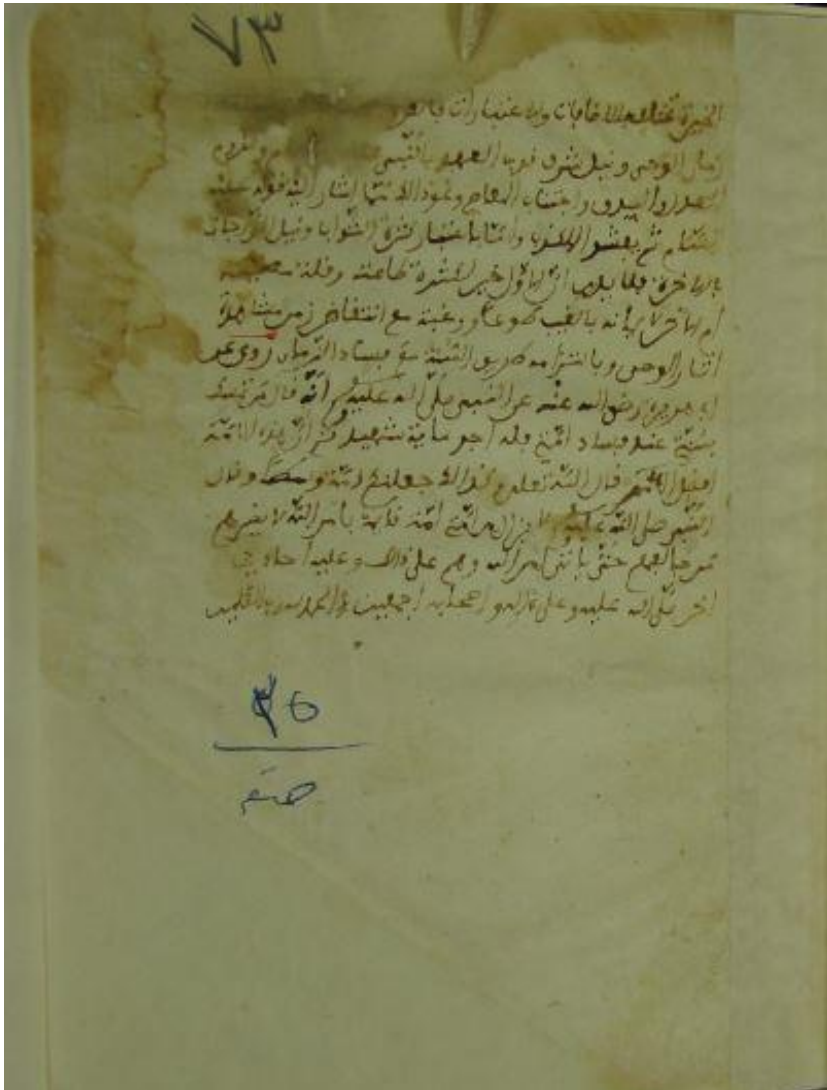 ٧٣
الخيرية تختلف بالاضافات والاعتبارات فالقرو
زمان الوحي ونيل شرف قرب العهد بالنبي ولزوم
العدل والصدق واجتناب ونحو ذلك اشار اليه قوله عليه
السلام ثم يفشو الكذب واما باعتبار كثرة الثواب ونيل الدرجات
في الاخرة فلا يدرى ان الاول خير لكثرة طاعته وقلة معصيته
ام الاخر لايمانه بالغيب طوعا ورغبة مع انقضاء زمن مشاهدة
اثار الوحي وبالتزامه طريق السنة مع فساد الزمان روي عن
ابي هريرة رضي الله عنه عن النبي صلى الله عليه وسلم انه قال من تمسك
بسنتي عند فساد امتي فله اجر ماية شهيد ثم ان هذه الامة
افضل الامم قال الله تعلى وكذلك جعلنكم امة وسطا وقال
النبي صلى الله عليه لا يزال من امتي امة قائمة بامر الله لا يضرهم
من خالفهم حتى ياتي امر الله وهم على ذلك وعليه احاديث
اخر صلى الله عليه وعلى اله واصحابه اجمعين والحمد لله رب العلمين
٣٥